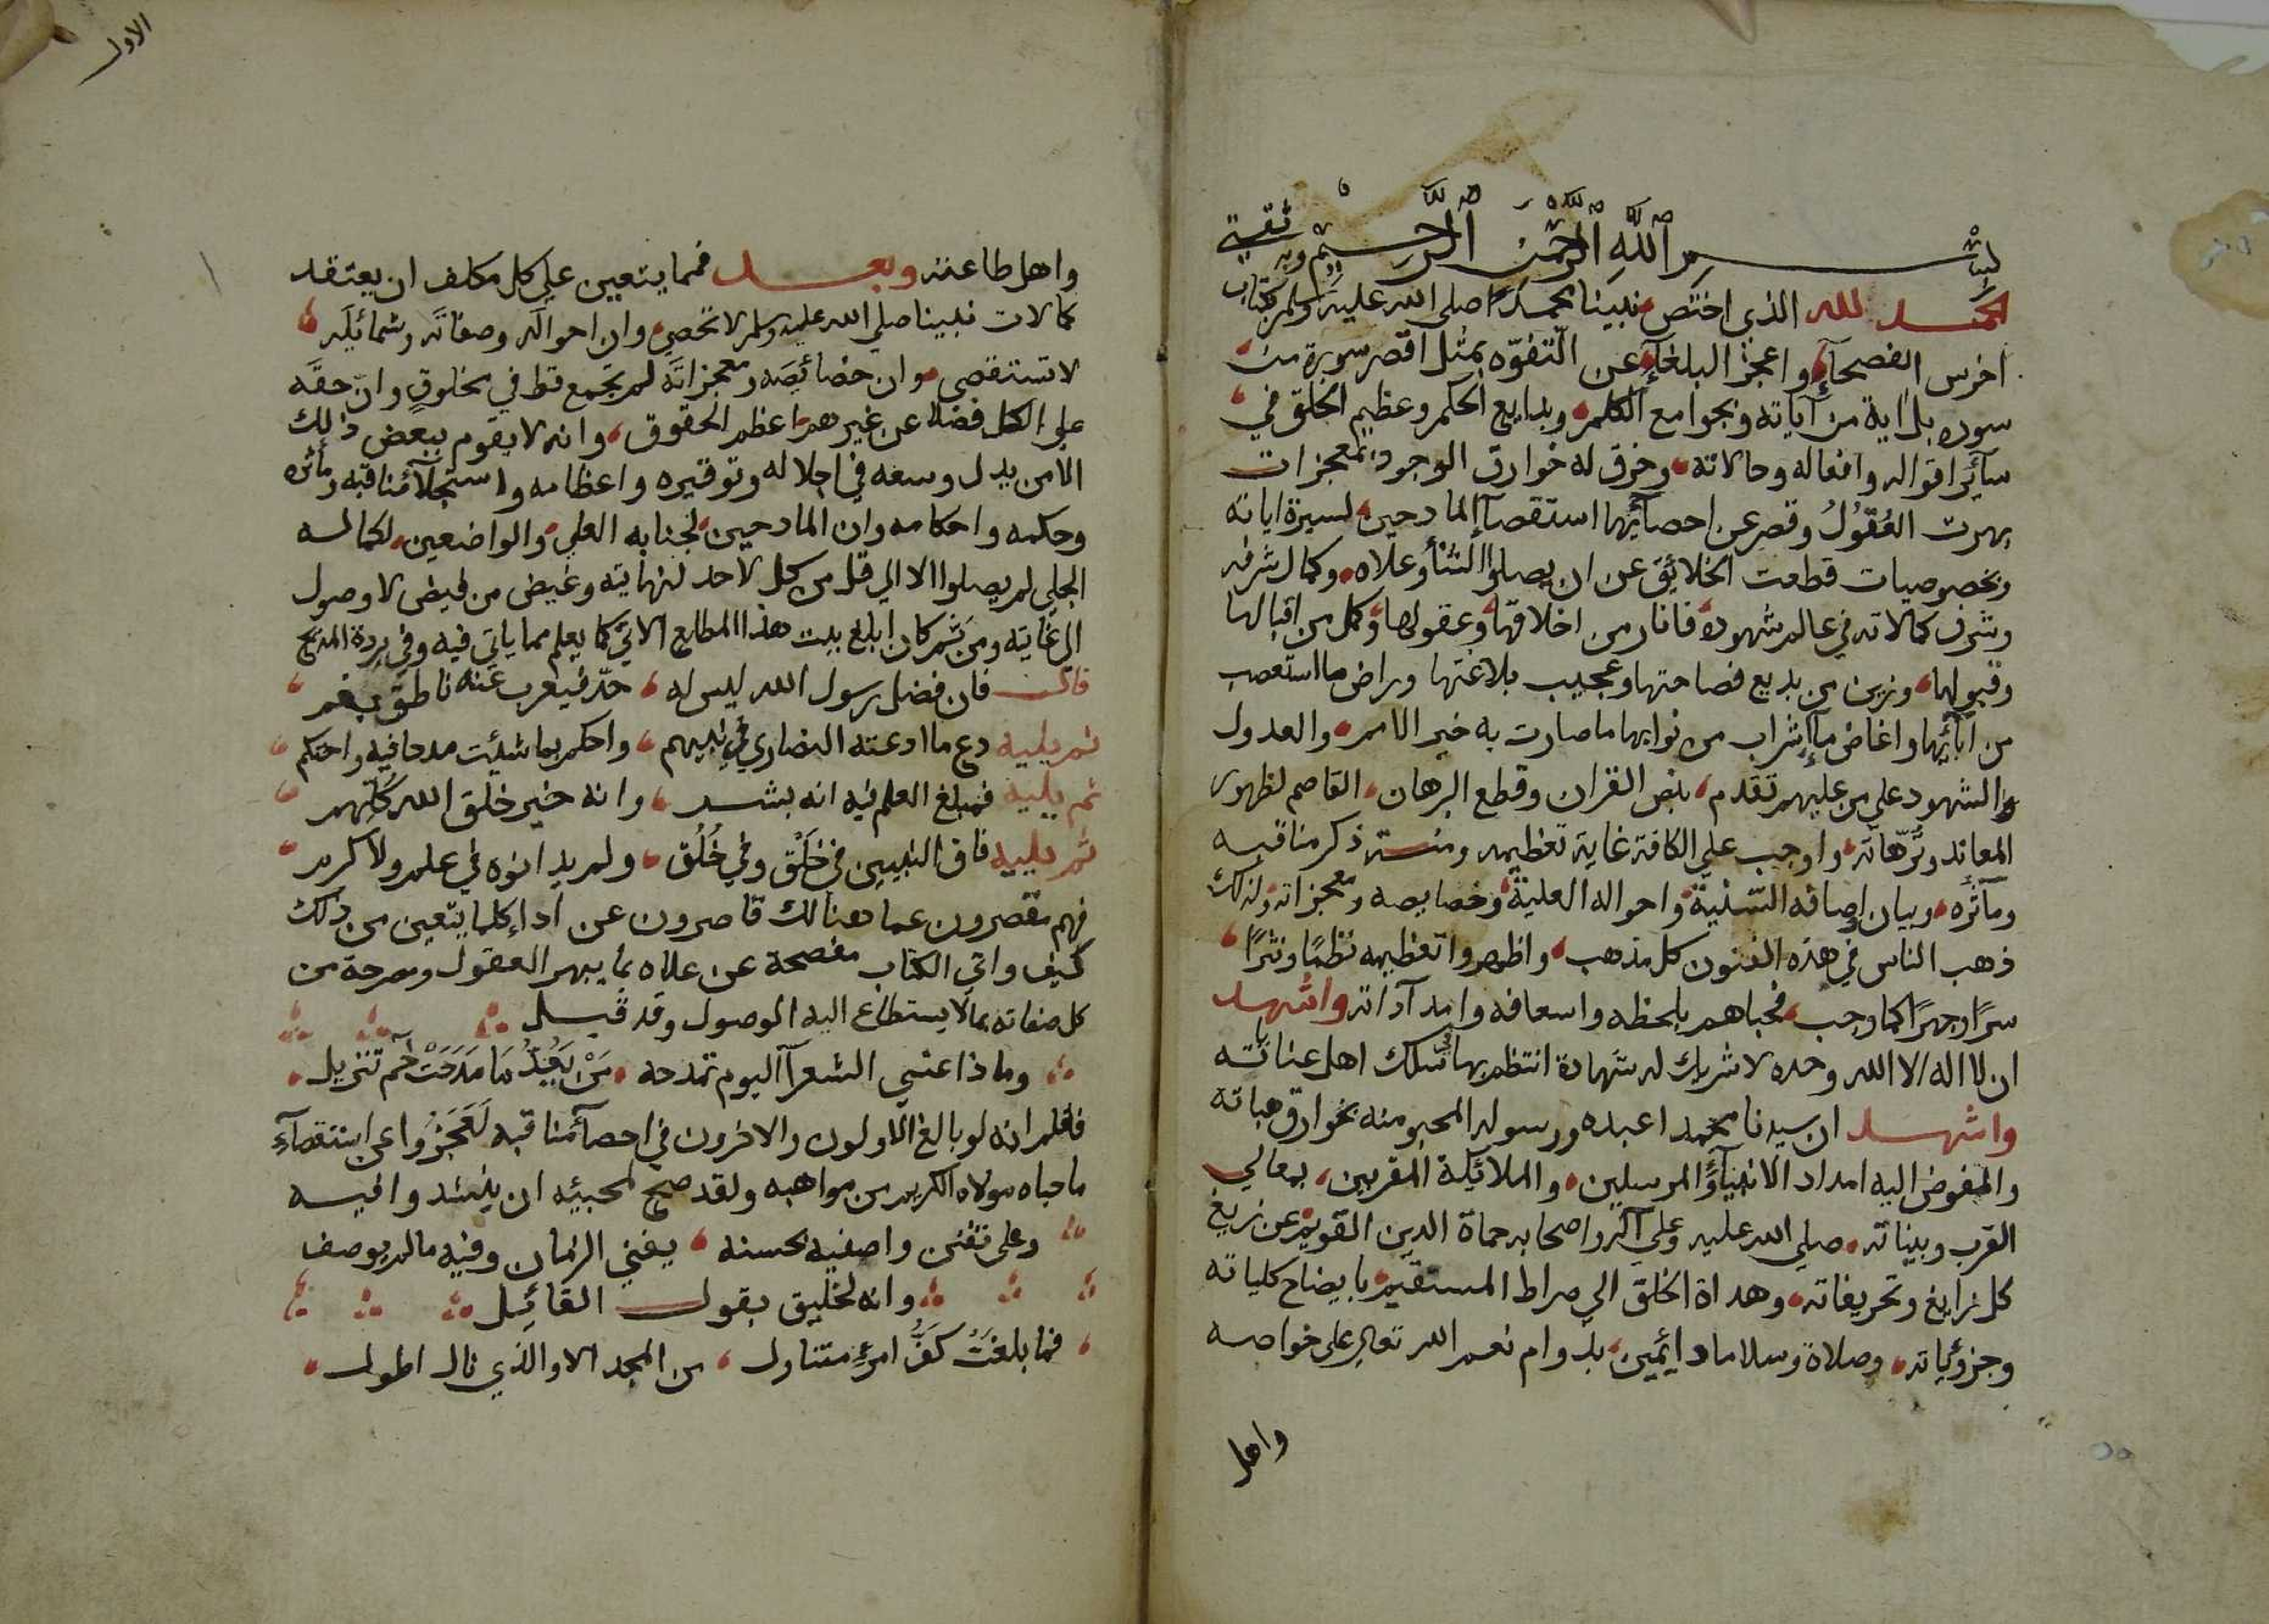 بسم الله الرحمن الرحيم وبه ثقتي
الحمد لله الذي اختص نبينا محمدا صلى الله عليه وسلم بكتاب
اخرس الفصحآء واعجز البلغآء عن التفوّه بمثل اقصر سورة من
سوره بل اية من آياته وبجوامع الكلم وبدايع الحكم وعظيم الخلق في
سآئر اقواله وافعاله وحالاته وخرق له خوارق الوجود بمعجزات
بهرت العُقولُ وقصر عن احصآئها استقصآء المادحين لسيرة اياته
وبخصوصيات قطعت الخلائق عن ان يصلوا لشأو علاه وكمال شرفه
وشرف كمالاته في عالم شهوده فانار من اخلاقها وعقولها وكمل من اقبالها
وقبولها وزين من بديع فصاحتها وعجيب بلاغتها وراض ما استعصب
من آبآئها واغاض مآء شراب من نوابها ما صارت به خير الامم والعدول
والشهود على من عليهم تقدم بنص القران وقطع البرهان القاصم لظهور
المعاند وترّهاته واوجب على الكافة غاية تعظيمه ونشر ذكر مناقبه
ومآثره وبيان اوصافه السّنية واحواله العلية وخصايصه ومعجزاته ولذلك
ذهب الناس في هذه الفنون كل مذهب واظهروا تعظيمه نظمًا ونثرًا
سرًا وجهرًا كما وجب فحباهم بلحظه واسعافه وامدآداته واشهد
ان لا اله الا الله وحده لا شريك له شهادة انتظم بها في سلك اهل عناياته
واشهد ان سيدنا محمدا عبده ورسوله المحبو منه بخوارق هباته
والمفوض اليه امداد الانبيآء والمرسلين والملائكة المقربين بمعالي
القرب وبيناته صلى الله عليه وعلى آله واصحابه حماة الدين القويم عن زيغ
كل زايغ وتحريفاته وهداة الخلق الي صراط المستقيم بايضاح كلياته
وجزوئياته وصلاة وسلاما دائمين بدوام نعم الله تعالى على خواصه
واهل
الاول
واهل طاعته وبعد فمما يتعين على كل مكلف ان يعتقد
كمالات نبينا صلى الله عليه وسلم لا تحصى وان احواله وصفاته وشمائله
لا تستقصى وان خصائصه ومعجزاته لم تجمع قط في مخلوق وان حقه
على الكل فضلا عن غيرهم اعظم الحقوق وانه لا يقوم ببعض ذلك
الا من بذل وسعه في اجلاله وتوقيره واعظامه واستجلآء مناقبه ومآثره
وحكمه واحكامه وان المادحين لجنابه العلي والواضعين لكماله
الجلي لم يصلوا الا الي قل من كل لا حد لنهايته وغيض من فيض لا وصول
الي غايته ومن ثم كان ابلغ بيت هذا المطلع الاتي كما يعلم مما ياتي فيه وفي بردة المديح
فان فضل رسول الله ليس له حدّ فيعرب عنه ناطق بفم
ثم يليه دع ما ادعته النصاري في نبيهم واحكم بما شئت مدحا فيه واحتكم
ثم يليه فمبلغ العلم فيه انه بشر وانه خير خلق الله كلهم
ثم يليه فاق النبيين في خَلْق وفي خُلُق ولم يدانوه في علم ولا كرم
فهم مقصرون عما هنالك قاصرون عن ادآء كلما يتعين من ذلك
كيف وآي الكتاب مفصحة عن علاه بما يبهر العقول ومصرحة من
كل صفاته بما لا يستطاع اليه الوصول وقد قيل
وماذا عسي الشعرآ اليوم تمدحه مَنْ بَعْدُ مَا مَدَحَتْ حم تنزيل
فاعلم انه لو بالغ الاولون والاخرون في احصآء مناقبه لَعَجَزُوا عن استقصآء
ما حباه مولاه الكريم من مواهبه ولقد صح لمحبيه ان ينشد وافيه
وعلى تفنن واصفيه بحسنه يفني الزمان وفيه ما لم يوصف
وانه لخليق بقول القائل
فما بلغت كفُّ امرئ متناول من المجد الا والذي نال اطول